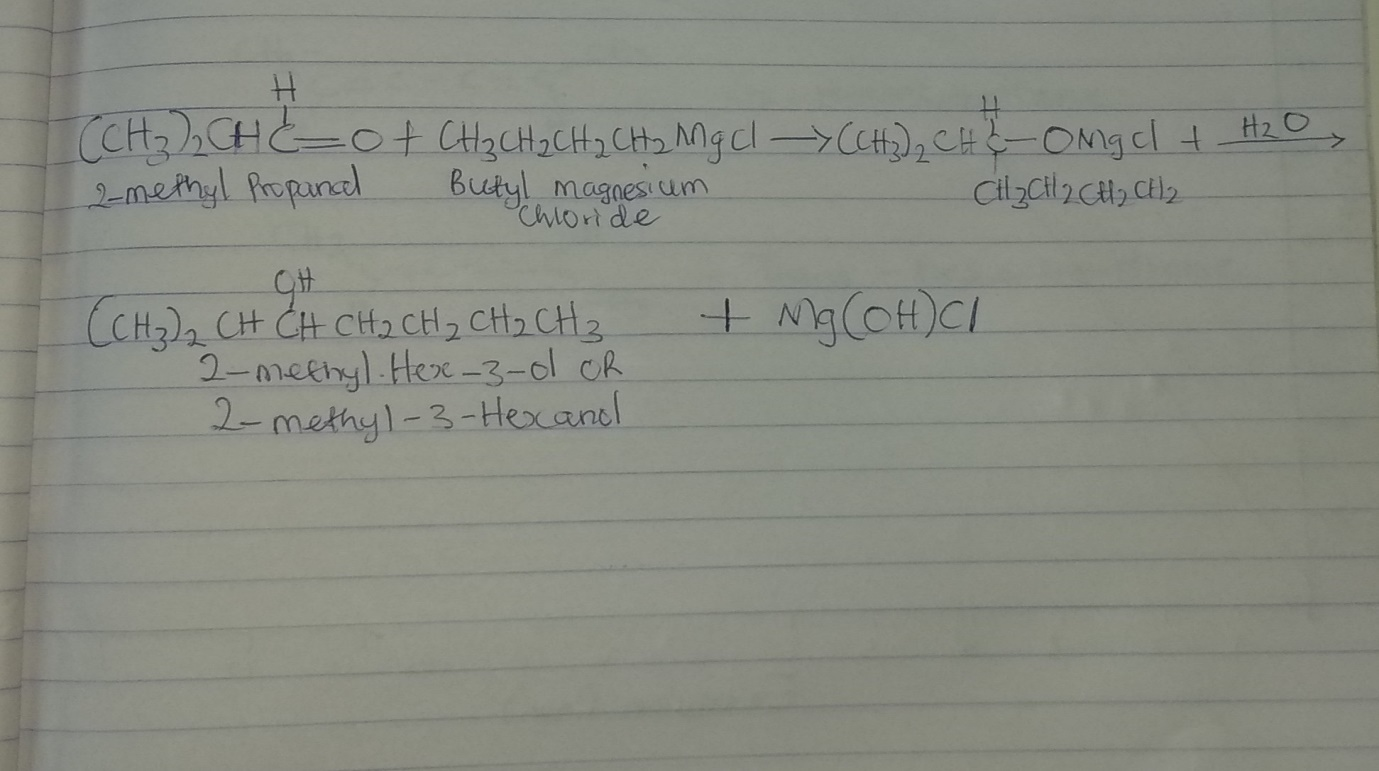 H
(CH3)2CHC=O + CH3CH2CH2CH2MgCl → (CH3)2CHC-OMgCl + H2O →
2-methyl Propanal Butyl magnesium chloride CH3CH2CH2CH2
OH
(CH3)2 CH CH CH2CH2CH2CH3 + Mg(OH)Cl
2-methyl-Hex-3-ol OR
2-methyl-3-Hexanol